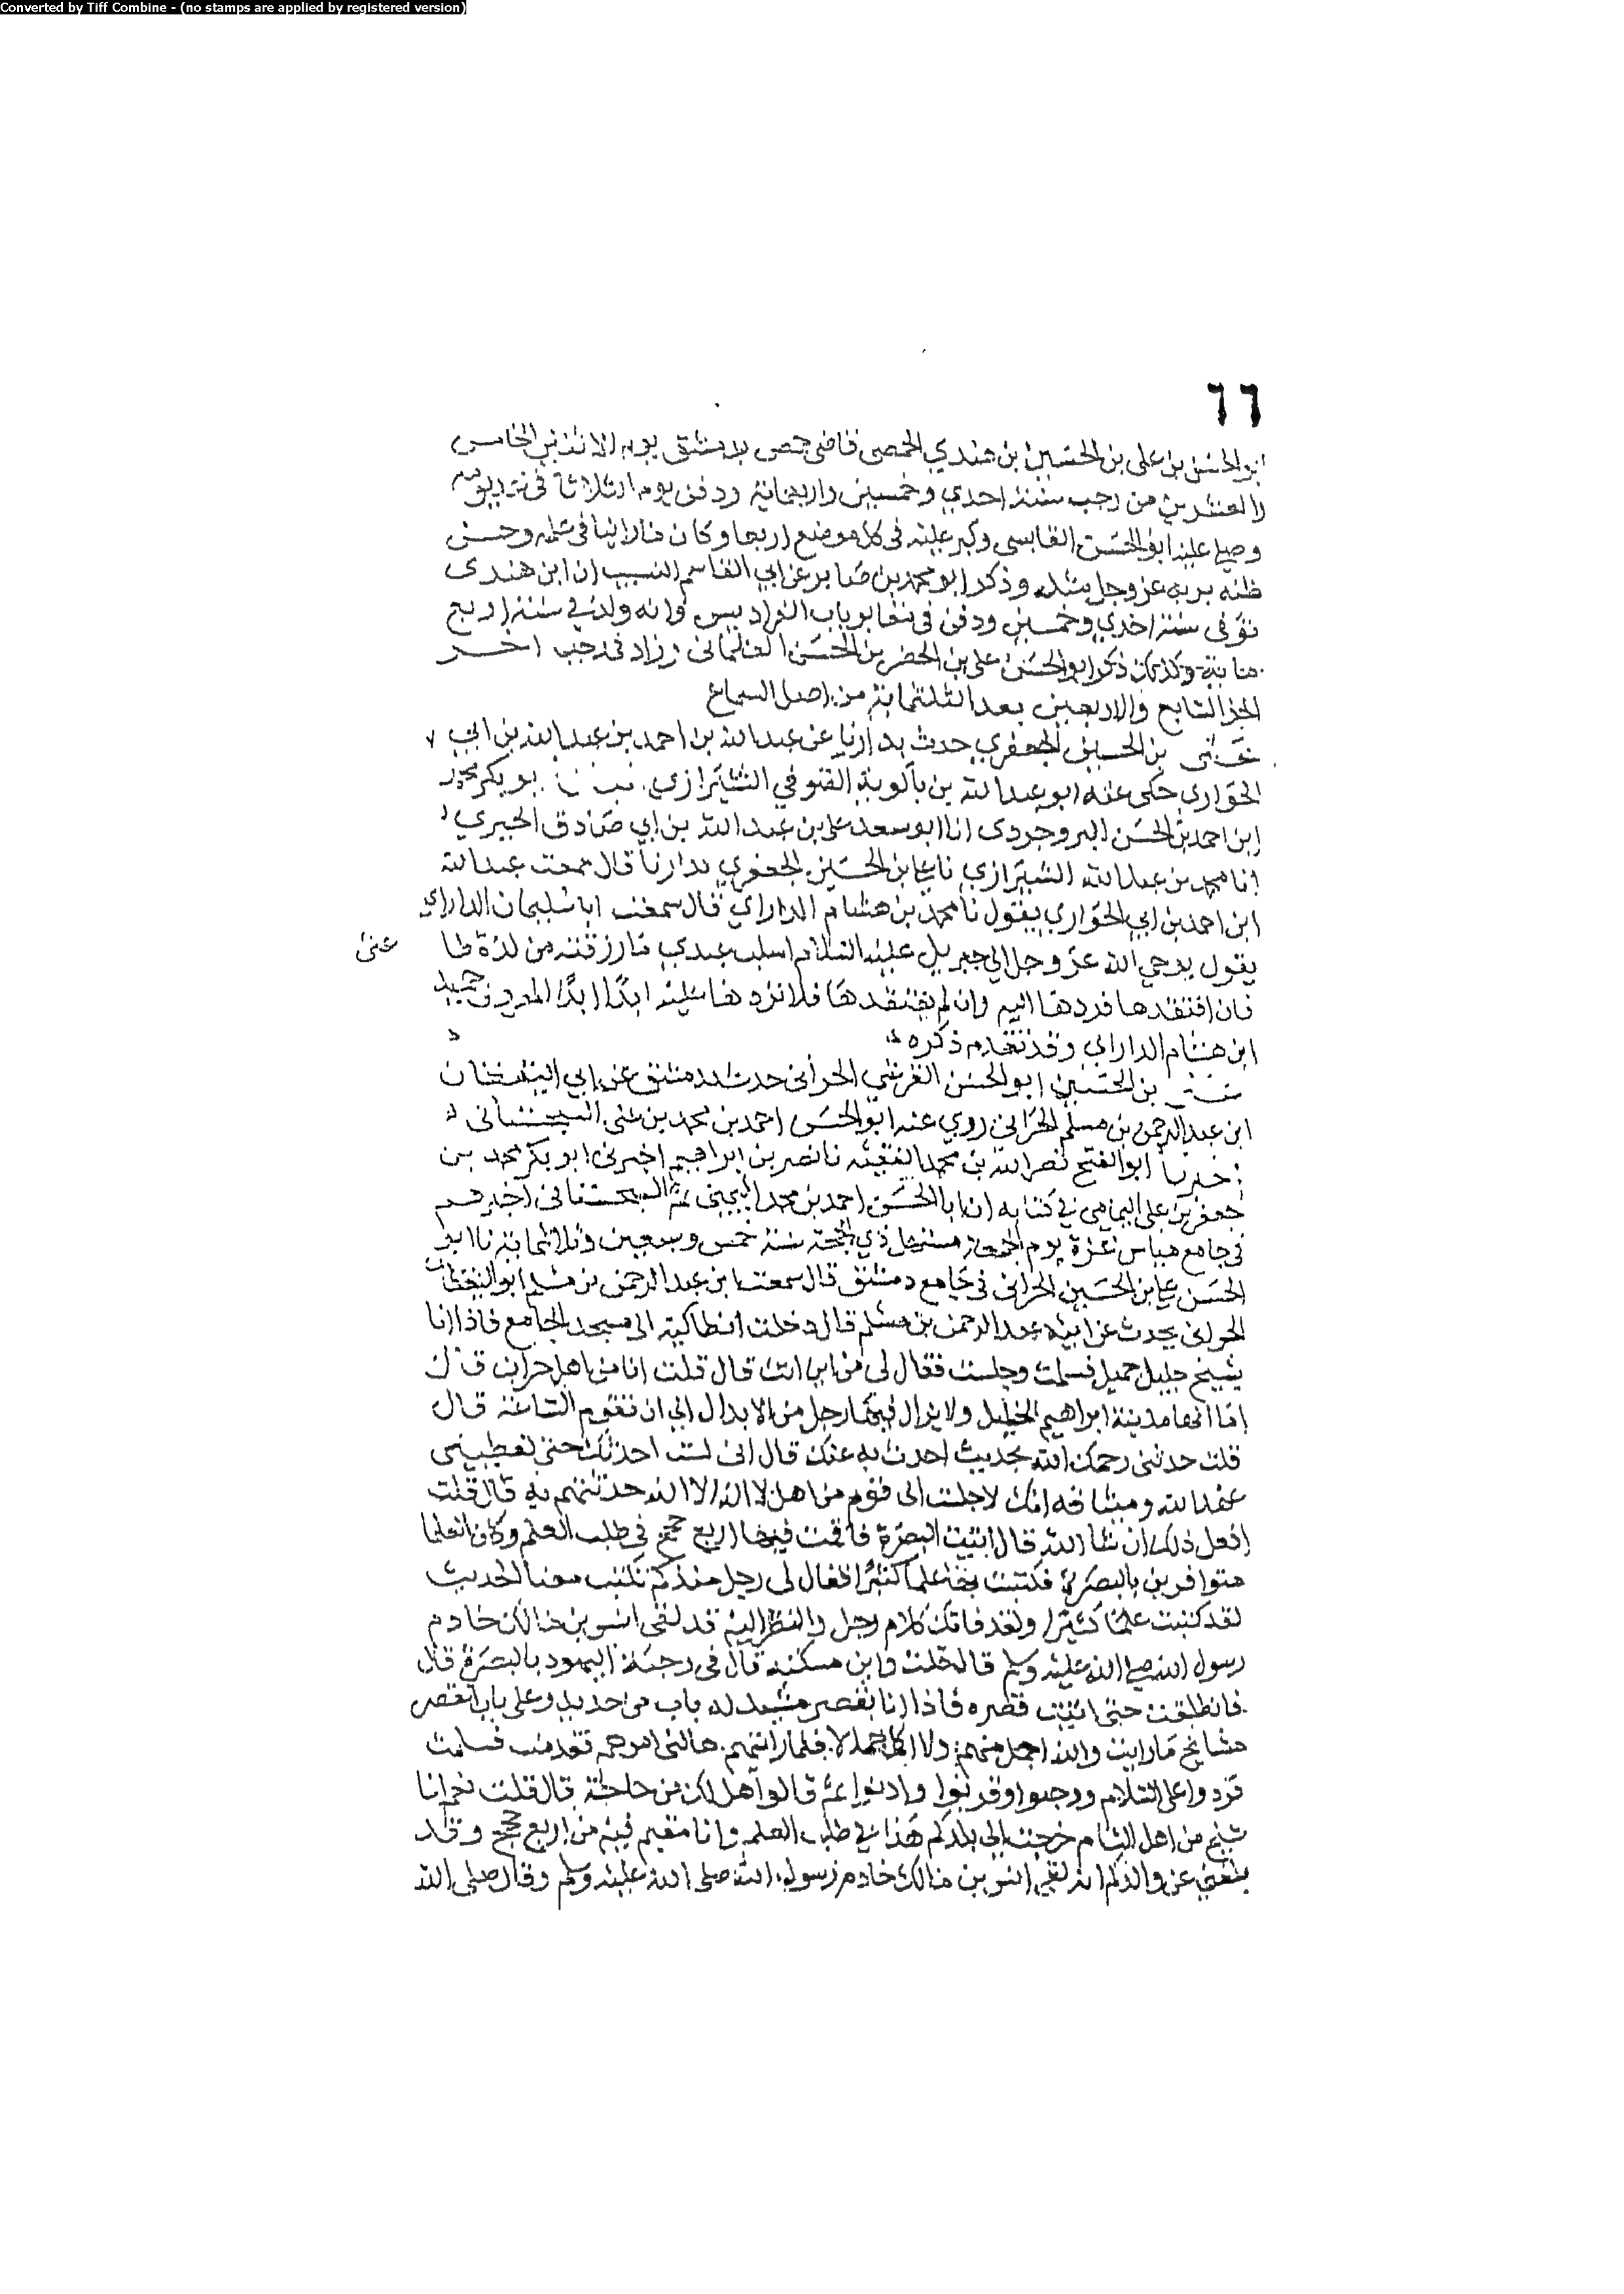 Converted by Tiff Combine - (no stamps are applied by registered version)
٦٦
ابو الحسن بن على بن الحسين بن هندي الحمصى قاضى حمص بدمشق يوم الاثنين الخامس
والعشرين من رجب سنة احدي وخمسين واربعماية ودفن يوم الثلاثا فى
وصلى عليه ابو الحسن القابسى وكبر عليه فى كل موضع اربعا وكان فى علمه وحسن
ظنه بربه عز وجل مثله وذكر ابو محمد بن صابر عن ابي القاسم النسيب ان ابن هندى
توفى سنة احدي وخمسين ودفن فى مقابر باب الفراديس وانه ولد في سنة اربع
ماية وكذلك ذكر ابو الحسن على بن الخضر بن الحسن العثمانى وزاد فى رجب اخر
الجز السابع والاربعين بعد الثلثماية من اصل السماع
على بن الحسين الجعفري حدث بداريا عن عبد الله بن احمد بن عبد الله بن ابي
الحواري حكى عنه ابو عبد الله بن باكوية الصوفي الشيرازي ابو بكر محمد
ابن احمد بن الحسن البروجردى انا ابو سعد على بن عبد الله بن ابي صادق الحيري
انا محمد بن عبد الله الشيرازي نا علي بن الحسين الجعفري بداريا قال سمعت عبد الله
ابن احمد بن ابي الحواري يقول نا محمد بن هشام الداراي قال سمعت ابا سليمان الداراي
يقول يوحي الله عز وجل الي جبريل عليه السلام اسلب عبدي ما رزقته من لذة طا عتى
فان افتقدها فردها اليه وان لم يفتقدها فلا تردها عليه ابدا ابدا المعروف حميد
ابن هشام الداراي وقد تقدم ذكره
على بن الحسين ابو الحسن القرشي الحرانى حدث بدمشق عن ابي اليقظان
ابن عبد الرحمن بن مسلم الحرانى روي عنه ابو الحسن احمد بن محمد بن السجستانى
اخبرنا ابو الفتح نصر الله بن محمد الفقيه نا نصر بن ابراهيم اخبرنى ابو بكر محمد بن
جعفر بن على الميماسى في كتابه ان ابا الحسن احمد بن محمد السجستانى اخبرهم
فى جامع ميماس غزة يوم الجمعة مستهل ذي الحجة سنة خمس وسبعين وثلاثماية نا ابو
الحسن علي بن الحسين الحرانى فى جامع دمشق قال سمعت ابن عبد الرحمن بن مسلم ابو اليقظان
الحرانى يحدث عن ابيه عبد الرحمن بن مسلم قال دخلت انطاكية الى مسجد الجامع فاذا انا
بشيخ جليل جميل فسلمت وجلست فقال لى من اين انت قال قلت انا من اهل حران قال
اما انها مدينة ابراهيم الخليل ولا يزال فيها رجل من الابدال الي ان تقوم الساعة قال
قلت حدثنى رحمك الله بحديث احدث به عنك قال انى لست احدثك حتى تعطينى
عهد الله وميثاقه انك لا جلست الى قوم من اهل لا اله الا الله حدثتهم به قال قلت
افعل ذلك ان شا الله قال اتيت البصرة فاقمت فيها اربع حجج فى طلب العلم وكان العلما
متوافرين بالبصرة فكتبت بها علما كثيرا فقال لى رجل منذ كم تكتب معنا الحديث
لقد كتبت علما كثيرا ولقد فاتك كلام رجل والنظر اليه قد لقى انس بن مالك خادم
رسول الله صلى الله عليه وسلم قال قلت واين مسكنه قال فى رحبة اليهود بالبصرة قال
فانطلقت حتى اتيت قصره فاذا انا بقصر مشيد له باب من حديد وعلى باب القصر
مشايخ ما رايت والله اجمل منهم ولا اكمل جمالا فلما رايتهم هالنى امرهم تقدمت فسلمت
فردوا على السلام ورحبوا وقربوا وادنوا ثم قالوا هل لك من حاجة قال قلت نعم انا
شيخ من اهل الشام خرجت الى بلدكم هذا في طلب العلم وانا مقيم فيه من اربع حجج وقد
بلغنى عن والدكم انه لقى انس بن مالك خادم رسول الله صلى الله عليه وسلم وقال صلى الله